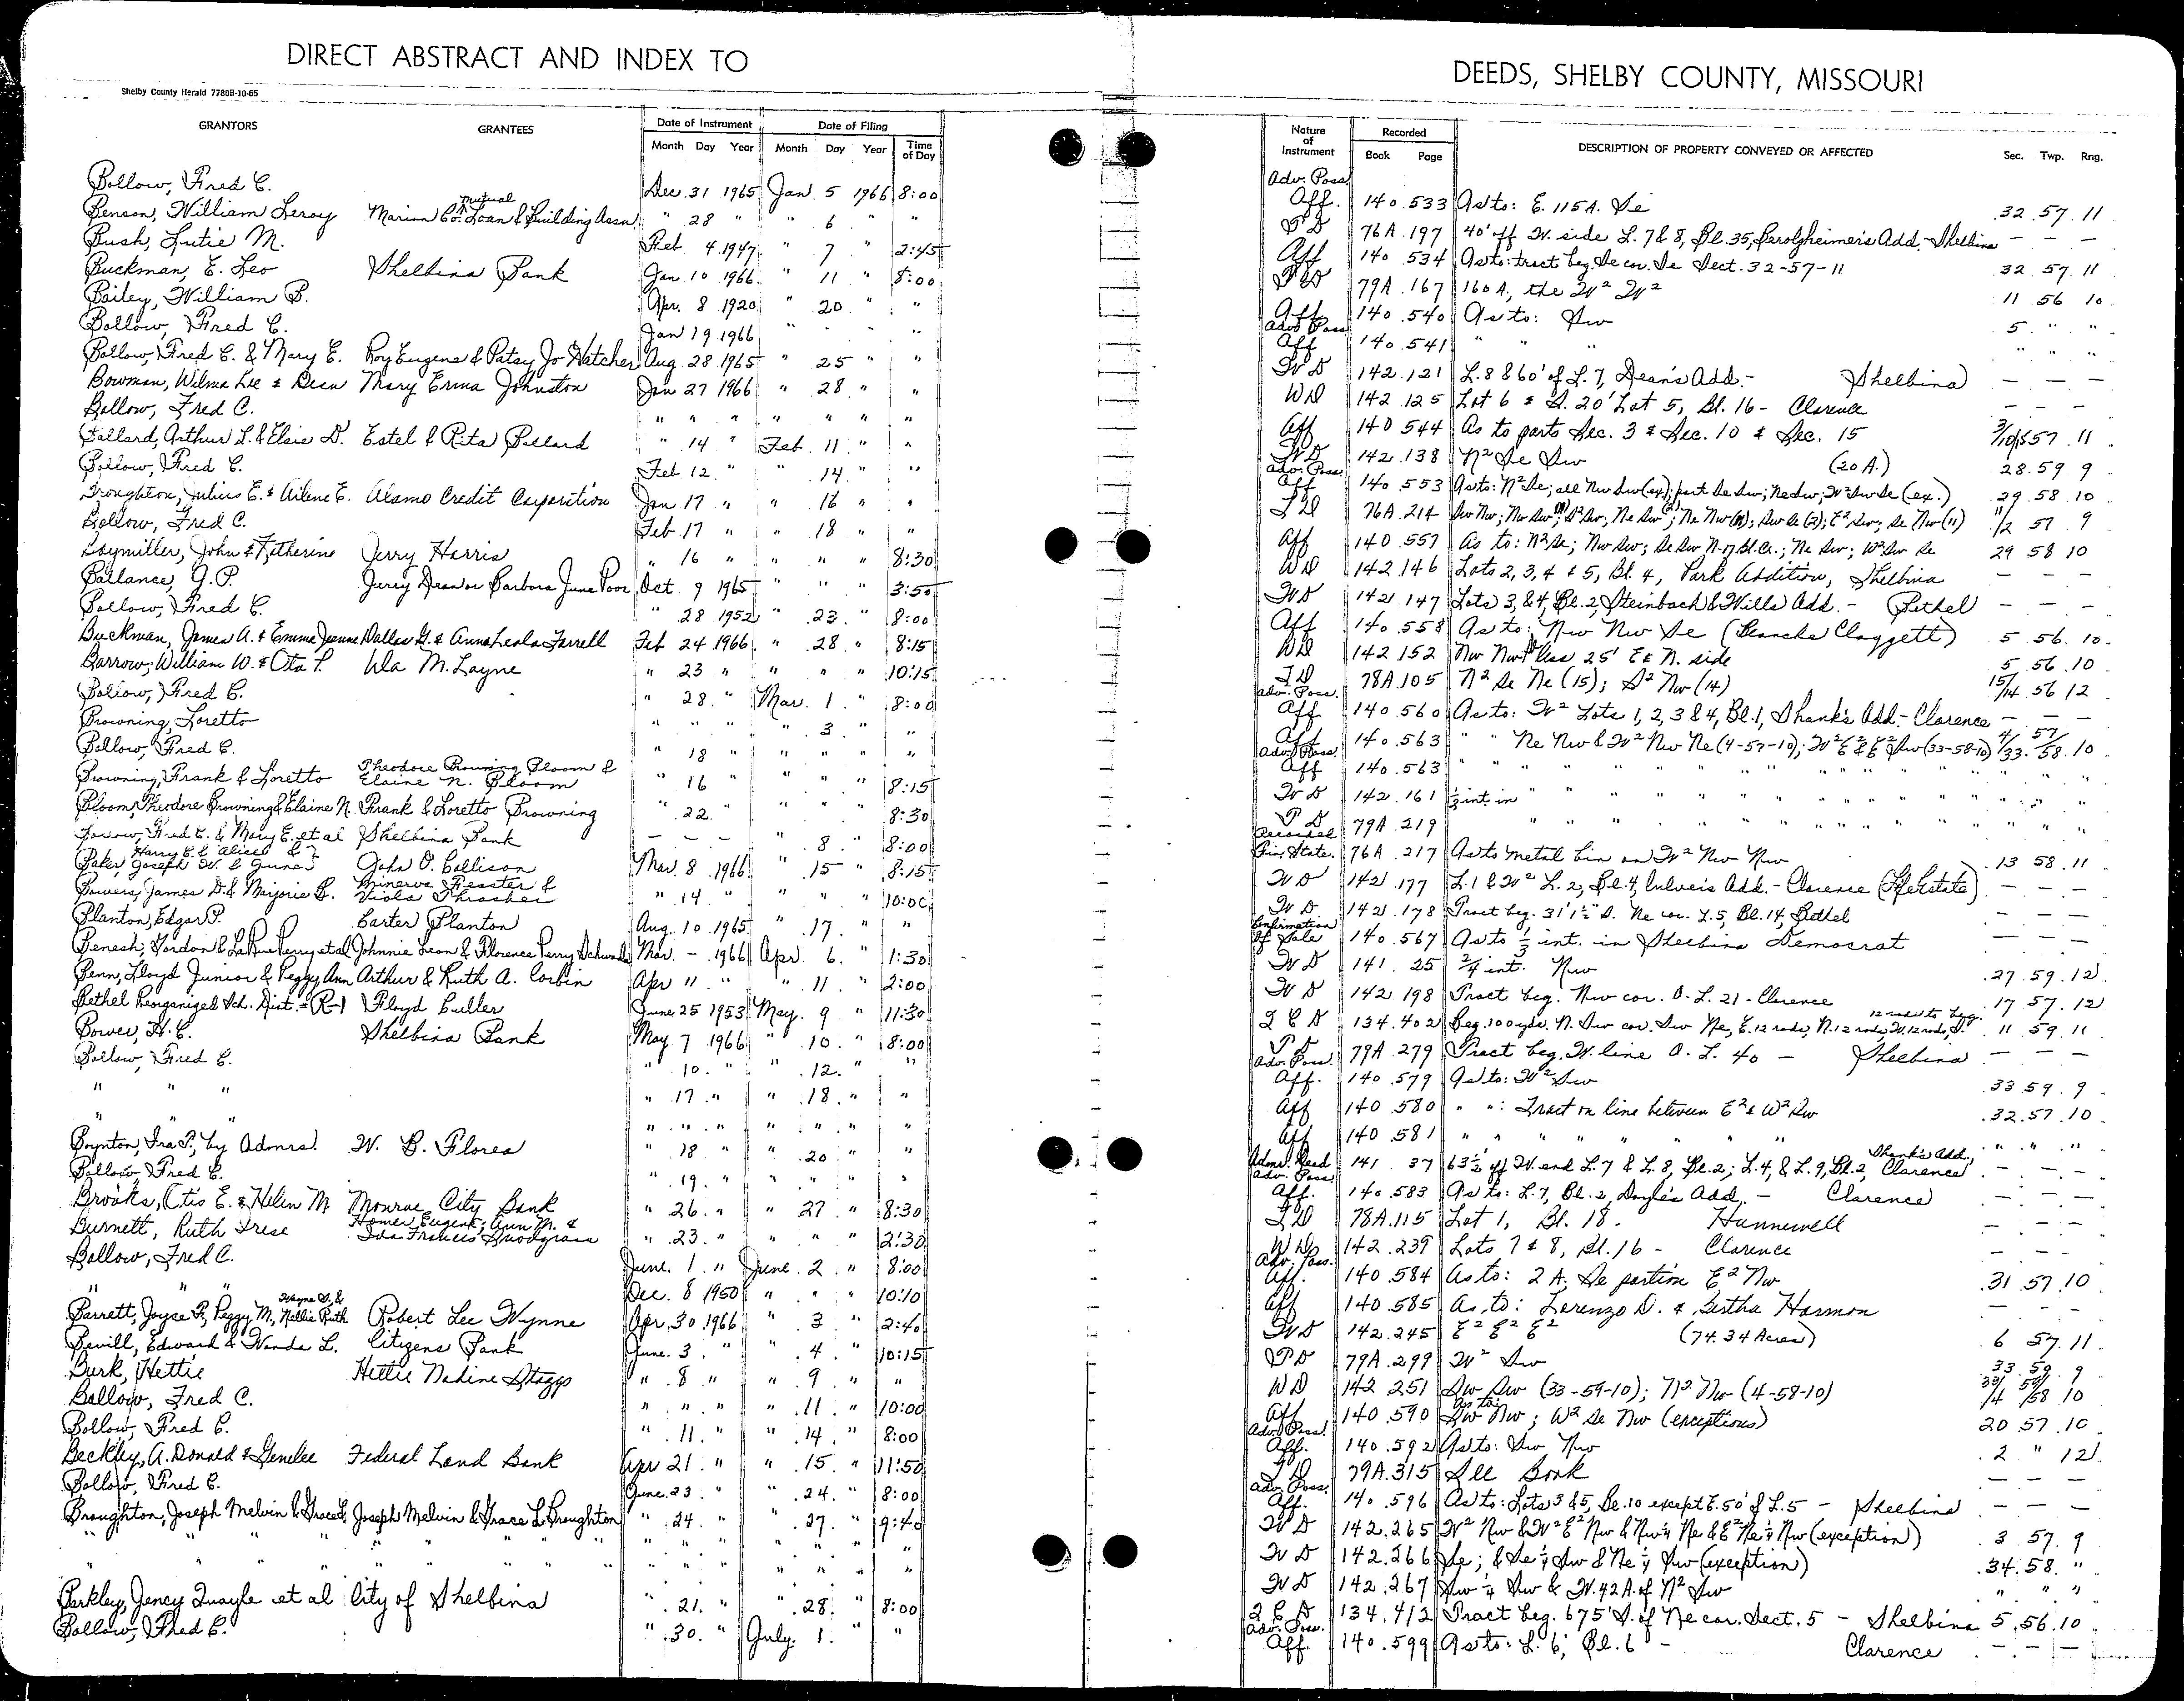 DIRECT ABSTRACT AND INDEX TO
DEEDS, SHELBY COUNTY, MISSOURI
Shelby County Herald 7780B-10-65
GRANTORS GRANTEES Date of Instrument Date of Filing Time of Day
Month Day Year Month Day Year
Nature of Instrument Recorded DESCRIPTION OF PROPERTY CONVEYED OR AFFECTED Sec. Twp. Rng.
Book Page
Bollow, Fred C. Dec. 31 1965 Jan. 5 1966 8:00 Adv. Poss. Aff. 140 533 As to: E. 115A. Se 32 57 11
Benson, William Leroy Marion Co. Mutual Loan & Building Assn. " 28 " " 6 " " 76A 197 40' off W. side L. 7 & 8, Bl. 35, Gerolzheimer's Add.- Shelbina — — —
Bush, Lutie M. Feb. 4 1947 " 7 " 2:45 Aff 140 534 As to: tract beg. Se cor. Se Sect. 32-57-11 32 57 11
Buckman, E. Leo Shelbina Bank Jan. 10 1966 " 11 " 8:00 79A 167 160 A, the W² W² 11 56 10
Bailey, William B. Apr. 8 1920 " 20 " " Aff 140 540 As to: Sw 5 " "
Bollow, Fred C. Jan 19 1966 " " " " Adv. Poss. Aff 140 541 " " " " " "
Bollow, Fred C. & Mary E. Roy Eugene & Patsy Jo Hatcher Aug. 28 1965 " 25 " " W D 142 121 L. 8 & 60' of L. 7, Dean's Add.- Shelbina — — —
Bowman, Wilma Lee & Dean Mary Erma Johnston Jan 27 1966 " 28 " " WD 142 125 Lot 6 & S. 20' Lot 5, Bl. 16 - Clarence — — —
Bollow, Fred C. " " " " " " " Aff 140 544 As to parts Sec. 3 & Sec. 10 & Sec. 15 57 11
Ballard, Arthur L. & Elsie D. Estel & Rita Ballard " 14 " Feb. 11 " " W D 142 138 N² Se Sw (20 A.) 28 59 9
Bollow, Fred C. Feb 12 " " 14 " " Adv. Poss. Aff 140 553 As to: N² Se; all Nw Sw (ex); part Se Sw; Ne Sw; W² Sw Se (ex.) 29 58 10
Broughton, Julius E. & Arlene E. Alamo Credit Corporation Jan 17 " " 16 " " T D 76A 214 57 9
Bollow, Fred C. Feb 17 " " 18 " " Aff 140 557 As to: N² Se; Nw Sw; Se Sw N. of Bl. Cr.; Ne Sw; W² Sw Se 29 58 10
Baymiller, John & Katherine Jerry Harris " 16 " " " " 8:30 WD 142 146 Lots 2, 3, 4 & 5, Bl. 4, Park Addition, Shelbina — — —
Ballance, G. P. Jerry Dean or Barbara June Poor Oct 9 1965 " " " 3:50 WD 142 147 Lots 3, & 4, Bl. 2, Steinbach & Wills Add. - Bethel — — —
Bollow, Fred C. " 28 1952 " 23 " 8:00 Aff 140 558 As to: Nw Nw Se (Blanche Claggett) 5 56 10
Buckman, James A. & Emma Jeanne Dallas G. & Anna Leola Farrell Feb 24 1966 " 28 " 8:15 WD 142 152 Nw Nw less 25' E & N. side 5 56 10
Barrow, William W. & Ota P. Ula M. Layne " 23 " " " " 10:15 T D 78A 105 N² Se Ne (15); S² Nw (14) 15/14 56 12
Bollow, Fred C. " 28 " Mar. 1 " 8:00 Adv. Poss. Aff 140 560 As to: W² Lots 1, 2, 3 & 4, Bl. 1, Shank's Add.- Clarence — — —
Browning, Loretto " " " " 3 " " Aff 140 563 " " Ne Nw & W² Nw Ne (4-57-10); W² E² & E² Sw (33-58-10) 4/33 57/58 10
Bollow, Fred C. " 18 " " " " " Adv. Poss. Aff 140 563 " " " " " "
Browning, Frank & Loretto Theodore Browning Bloom & Elaine N. Bloom " 16 " " " 8:15 W D 142 161 ½ int. in " " " "
Bloom, Theodore Browning & Elaine N. Frank & Loretto Browning " 22 " " " 8:30 79A 219 " " " "
Bollow, Fred C. & Mary E. et al Shelbina Bank — — — " 8 " 8:00 Fin. State. 76A 217 As to metal bin on W² Nw Nw 13 58 11
Baker, Harry E. & Alice & Joseph W. & June John O. Collison Mar. 8 1966 " 15 " 8:15 W D 142 177 L. 1 & W² L. 2, Bl. 4, Culver's Add. - Clarence (Life Estate) — — —
Bowers, James D. & Marjorie B. Minerva Feaster & Viola Thrasher " 14 " " " " 10:00 W D 142 178 Tract beg. 31' 1½" S. Ne cor. L. 5, Bl. 14, Bethel — — —
Blanton, Edgar P. Carter Blanton Aug. 10 1965 " 17 " " Confirmation of Sale 140 567 As to ½ int. in Shelbina Democrat — — —
Benesh, Gordon & LaRue Perry et al Johnnie Leon & Florence Perry Mar. — 1966 Apr. 6 " 1:30 W D 141 25 ¾ int. Nw 27 59 12
Benn, Lloyd Junior & Peggy Ann Arthur & Ruth A. Corbin Apr 11 " " 11 " 2:00 W D 142 198 Tract beg. Nw cor. O. L. 21 - Clarence 17 57 12
Bethel Reorganized Sch. Dist. # R-1 Floyd Culler June 25 1953 May 9 " 11:30 Q C D 134 402 Beg. 100 yds. N. Sw cor. Sw Ne, E. 12 rods, N. 12 rods, W. 12 rods, S. 12 rods to beg. 11 59 11
Bower, H. C. Shelbina Bank May 7 1966 " 10 " 8:00 79A 279 Tract beg. W. line O. L. 40 — Shelbina — — —
Bollow, Fred C. " 10 " " 12 " " Adv. Poss. Aff. 140 579 As to: W² Sw 33 59 9
" " " " 17 " " 18 " " Aff 140 580 " ": Tract on line between E² & W² Sw 32 57 10
" " " " " " " " " Aff 140 581 " " " " " " " " "
Boynton, Ira P., by Admrs. W. B. Florea " 18 " " 20 " " Admr. Deed 141 37 63½' off W. end L. 7 & L. 8, Bl. 2; L. 4, & L. 9, Bl. 2, Shank's Add., Clarence — — —
Bollow, Fred C. " 19 " " " " " Adv. Poss. Aff. 140 583 As to: L. 7, Bl. 2, Doyle's Add. - Clarence — — —
Brooks, Otis E. & Helen M Monroe City Bank " 26 " " 27 " 8:30 T D 78A 115 Lot 1, Bl. 18 - Hunnewell — — —
Burnett, Ruth Irese Homer Eugene; Ann M. & Ida Francis Snodgrass " 23 " " " " 2:30 WD 142 239 Lots 7 & 8, Bl. 16 - Clarence — — —
Bollow, Fred C. June 1 " June 2 " 8:00 Adv. Poss. Aff. 140 584 As to: 2 A. Se portion E² Nw 31 57 10
" " " Dec. 8 1950 " " " 10:10 Aff 140 585 As to: Lorenzo D. & Bertha Harmon — — —
Barrett, Joyce F., Peggy M., Wayne S. & Nellie Ruth Robert Lee Wynne Apr. 30 1966 " 3 " 2:40 WD 142 245 E² E² E² (74.34 Acres) 6 57 11
Bevill, Edward & Wanda L. Citizens Bank June 3 " " 4 " 10:15 79A 299 W² Sw 33 59 9
Burk, Hettie Hettie Nadine Staggs " 8 " " 9 " " WD 142 251 Sw Sw (33-59-10); N² Nw (4-58-10) 33/4 59/58 10
Bollow, Fred C. " " " " 11 " 10:00 Aff 140 590 As to: Sw Nw; W² Se Nw (exceptions) 20 57 10
Bollow, Fred C. " 11 " " 14 " 8:00 Adv. Poss. Aff. 140 592 As to: Sw Nw 2 " 12
Beckley, A. Donald & Genelee Federal Land Bank Apr 21 " " 15 " 11:50 T D 79A 315 See Book — — —
Bollow, Fred C. June 23 " " 24 " 8:00 Adv. Poss. Aff. 140 596 As to: Lots 3 & 5, Bl. 10 except E. 50' of L. 5 - Shelbina — — —
Broughton, Joseph Melvin & Grace L. Joseph Melvin & Grace L Broughton " 24 " " 27 " 9:40 W D 142 265 W² Nw & W² E² Nw & Nw¼ Ne & E² Ne¼ Nw (exception) 3 57 9
" " " " " " " " " " " W D 142 266 Se; & Se ¼ Sw & Ne ¼ Sw (exception) 34 58 "
" " " " " " " " " " " W D 142 267 Sw ¼ Sw & W. 42 A. of N² Sw " " "
Barkley, Jency Quayle et al City of Shelbina " 21 " " 28 " 8:00 Q C D 134 412 Tract beg. 675' S. of Ne cor. Sect. 5 - Shelbina 5 56 10
Bollow, Fred C. " 30 " July 1 " " Adv. Poss. Aff. 140 599 As to: L. 6, Bl. 6 - Clarence — — —